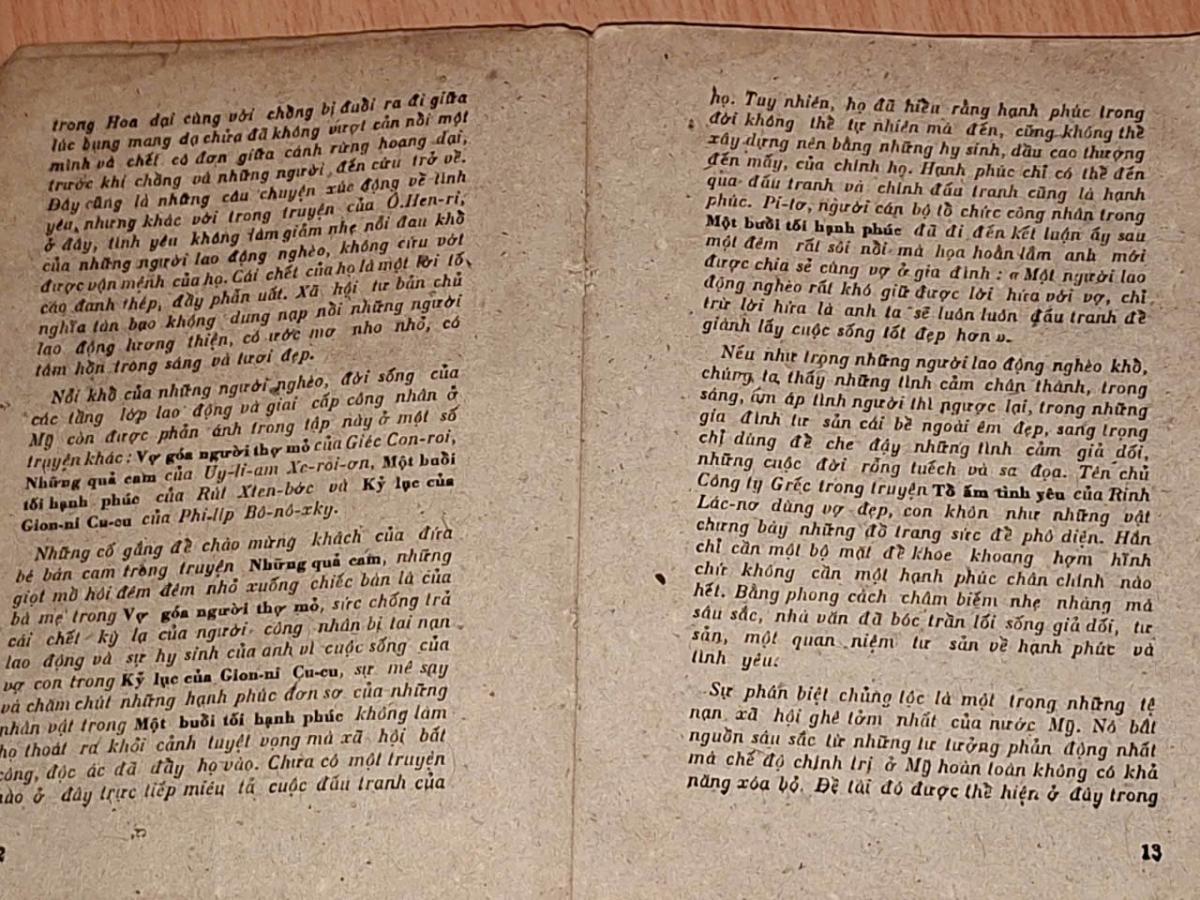 trong Hoa dại cùng với chồng bị đuổi ra đi giữa
lúc bụng mang dạ chửa đã không vượt cản nổi một
mình và chết cô đơn giữa cánh rừng hoang dại,
trước khi chồng và những người đến cứu trở về.
Đây cũng là những câu chuyện xúc động về tình
yêu, nhưng khác với trong truyện của Ô.Hen-ri,
ở đây, tình yêu không làm giảm nhẹ nỗi đau khổ
của những người lao động nghèo, không cứu vớt
được vận mệnh của họ. Cái chết của họ là một lời tố
cáo đanh thép, đầy phẫn uất. Xã hội tư bản chủ
nghĩa tàn bạo không dung nạp nổi những người
lao động lương thiện, có ước mơ nho nhỏ, có
tâm hồn trong sáng và tươi đẹp.
Nỗi khổ của những người nghèo, đời sống của
các tầng lớp lao động và giai cấp công nhân ở
Mỹ còn được phản ánh trong tập này ở một số
truyện khác : Vợ góa người thợ mỏ của Giéc Con-roi,
Những quả cam của Uy-li-am Xe-rôi-ơn, Một buổi
tối hạnh phúc của Rút Xten-bớc và Kỷ lục của
Gion-ni Cu-cu của Phi-líp Bô-nô-xky.
Những cố gắng để chào mừng khách của đứa
bé bán cam trong truyện Những quả cam, những
giọt mồ hôi đêm đêm nhỏ xuống chiếc bàn là của
bà mẹ trong Vợ góa người thợ mỏ, sức chống trả
cái chết kỳ lạ của người công nhân bị tai nạn
lao động và sự hy sinh của anh vì cuộc sống của
vợ con trong Kỷ lục của Gion-ni Cu-cu, sự mê say
và chăm chút những hạnh phúc đơn sơ của những
nhân vật trong Một buổi tối hạnh phúc không làm
họ thoát ra khỏi cảnh tuyệt vọng mà xã hội bất
công, độc ác đã đẩy họ vào. Chưa có một truyện
nào ở đây trực tiếp miêu tả cuộc đấu tranh của
2
họ. Tuy nhiên, họ đã hiểu rằng hạnh phúc trong
đời không thể tự nhiên mà đến, cũng không thể
xây dựng nên bằng những hy sinh, dầu cao thượng
đến mấy, của chính họ. Hạnh phúc chỉ có thể đến
qua đấu tranh và chính đấu tranh cũng là hạnh
phúc. Pi-tơ, người cán bộ tổ chức công nhân trong
Một buổi tối hạnh phúc đã đi đến kết luận ấy sau
một đêm rất sôi nổi mà họa hoằn lắm anh mới
được chia sẻ cùng vợ ở gia đình : « Một người lao
động nghèo rất khó giữ được lời hứa với vợ, chỉ
trừ lời hứa là anh ta sẽ luôn luôn đấu tranh để
giành lấy cuộc sống tốt đẹp hơn ».
Nếu như trong những người lao động nghèo khổ,
chúng ta thấy những tình cảm chân thành, trong
sáng, ấm áp tình người thì ngược lại, trong những
gia đình tư sản cái bề ngoài êm đẹp, sang trọng
chỉ dùng để che đậy những tình cảm giả dối,
những cuộc đời rỗng tuếch và sa đọa. Tên chủ
Công ty Gréc trong truyện Tổ ấm tình yêu của Rinh
Lác-nơ dùng vợ đẹp, con khôn như những vật
chưng bày những đồ trang sức để phô diện. Hắn
chỉ cần một bộ mặt để khoe khoang hợm hĩnh
chứ không cần một hạnh phúc chân chính nào
hết. Bằng phong cách châm biếm nhẹ nhàng mà
sâu sắc, nhà văn đã bóc trần lối sống giả dối, tư
sản, một quan niệm tư sản về hạnh phúc và
tình yêu.
Sự phân biệt chủng tộc là một trong những tệ
nạn xã hội ghê tởm nhất của nước Mỹ. Nó bắt
nguồn sâu sắc từ những tư tưởng phản động nhất
mà chế độ chính trị ở Mỹ hoàn toàn không có khả
năng xóa bỏ. Đề tài đó được thể hiện ở đây trong
13